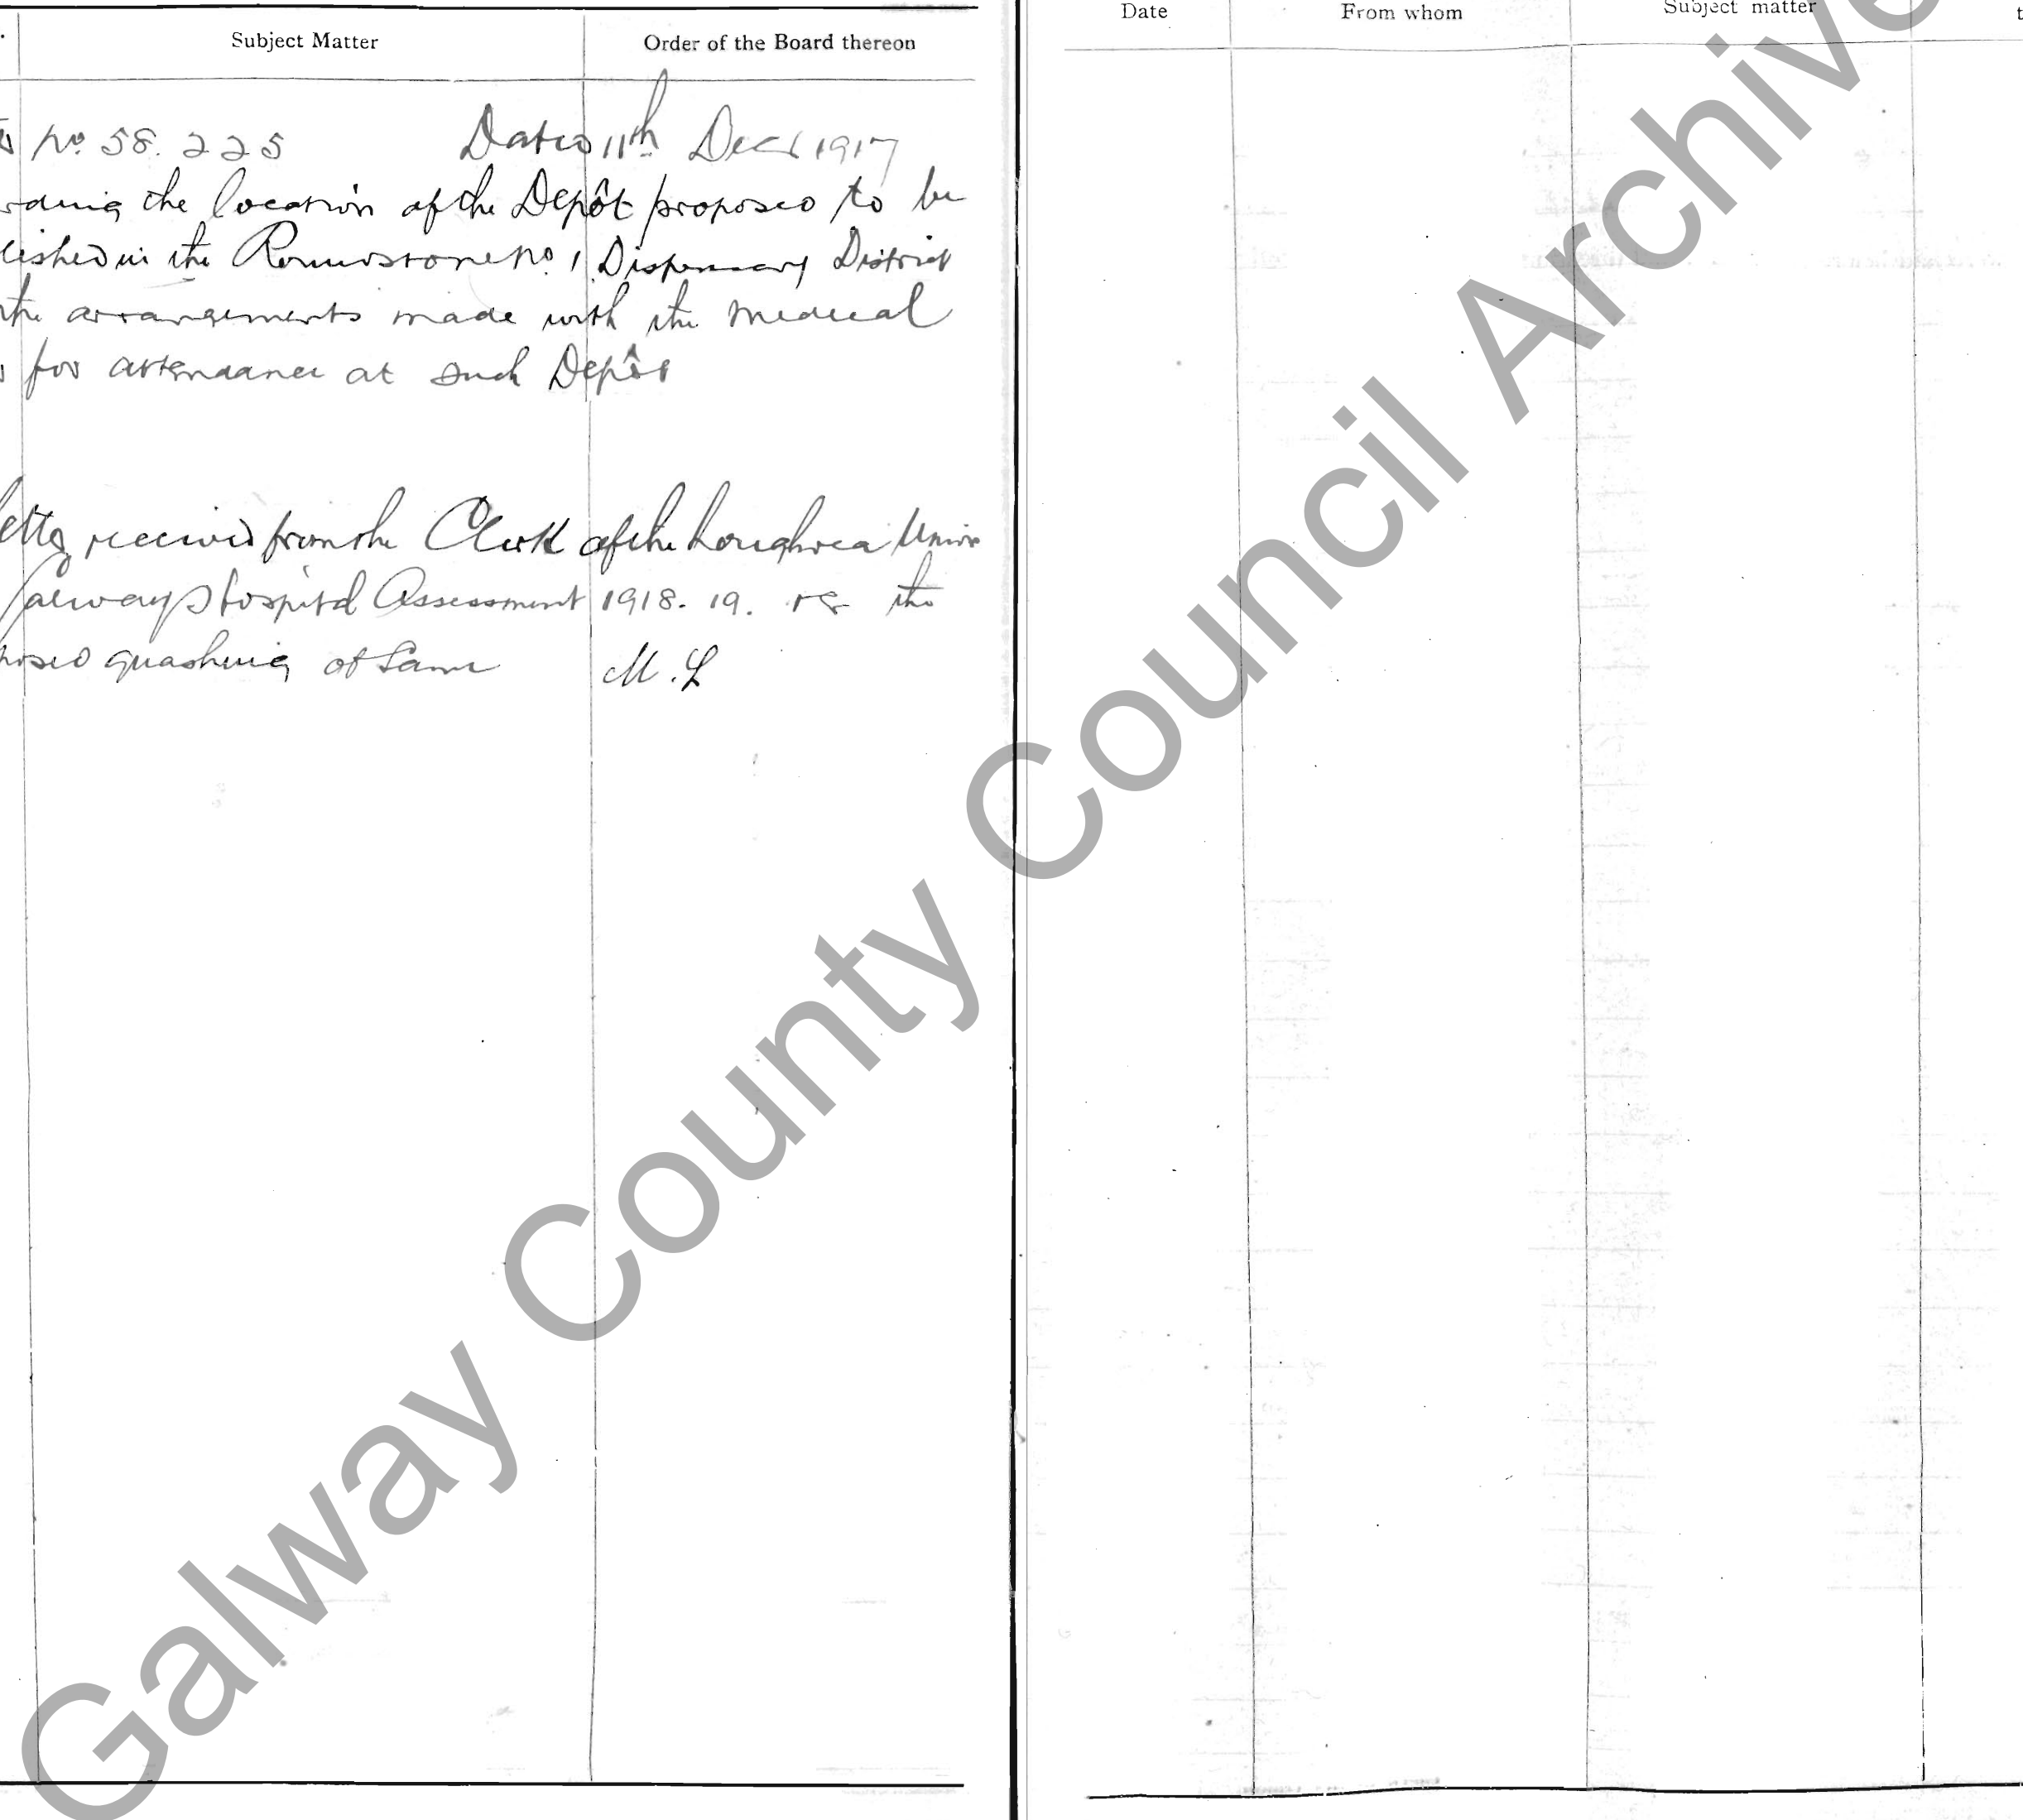 Subject Matter Order of the Board thereon
No. 58.225 Dated 11th Decr 1917
the location of the Depôt proposed to be
lished in the No. 1 Dispensary District
the arrangements made with the medical
for attendance at such Depôt
received from the Clerk of the Loughrea Union
Galway Hospital Assessment 1918.19. re the
posed quashing of same M.L
Date From whom Subject matter
Galway County Council Archive